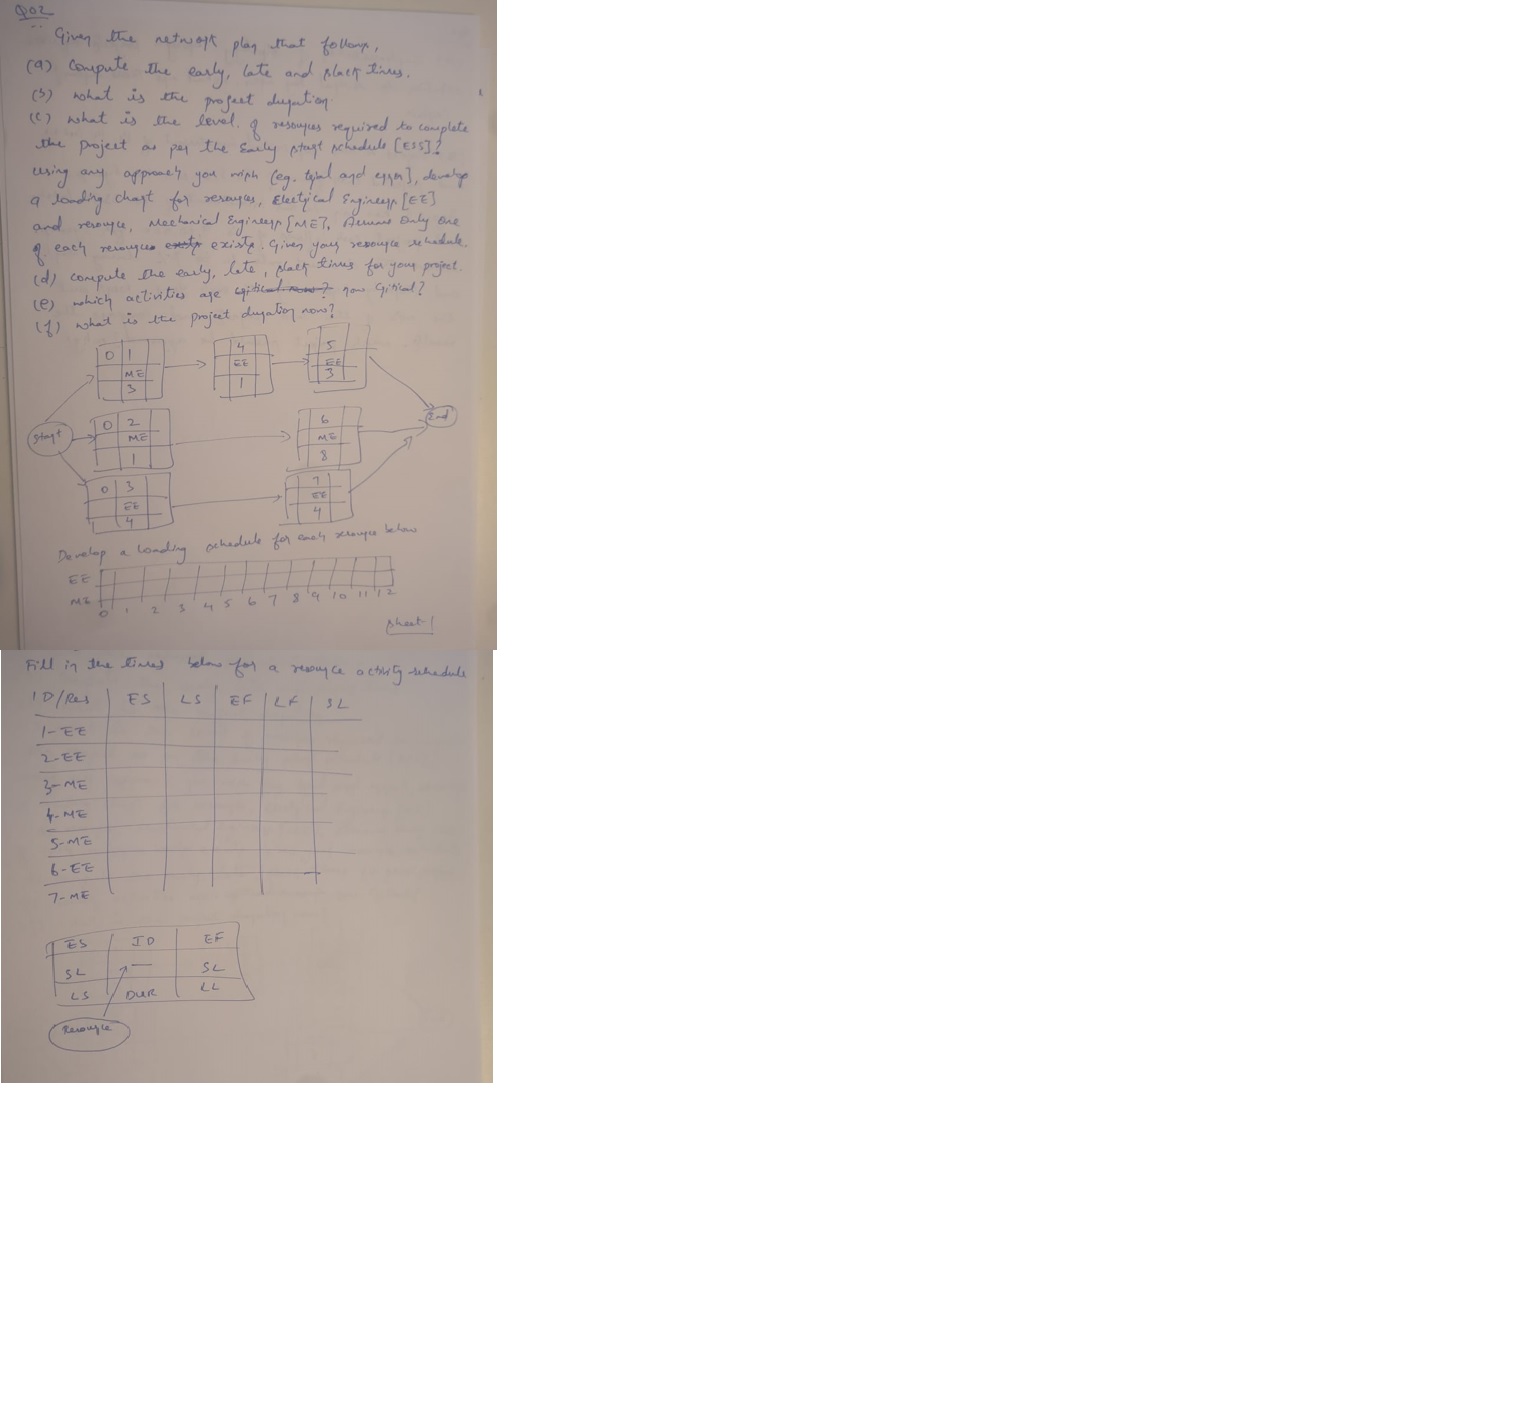 Q02
Given the network plan that follows,
(a) Compute the early, late and slack times.
(b) what is the project duration
(c) what is the level of resources required to complete
the project as per the Early start schedule [ESS]?
Using any approach you wish (eg. trial and error], develop
a loading chart for resources, Electrical Engineers [EE]
and resource, Mechanical Engineers [ME]. Assume only one
of each resource exists. Given your resource schedule.
(d) compute the early, late, slack times for your project.
(e) which activities are now Critical?
(f) what is the project duration now?
0 1
ME
3
4
EE
1
5
EE
3
Start
0 2
ME
1
6
ME
8
End
0 3
EE
4
7
EE
4
Develop a loading schedule for each resource below
EE
ME
0 1 2 3 4 5 6 7 8 9 10 11 12
Sheet 1
Fill in the times below for a resource activity schedule
ID/Res ES LS EF LF SL
1-EE
2-EE
3-ME
4-ME
5-ME
6-EE
7-ME
ES ID EF
SL — SL
LS DUR LL
Resource